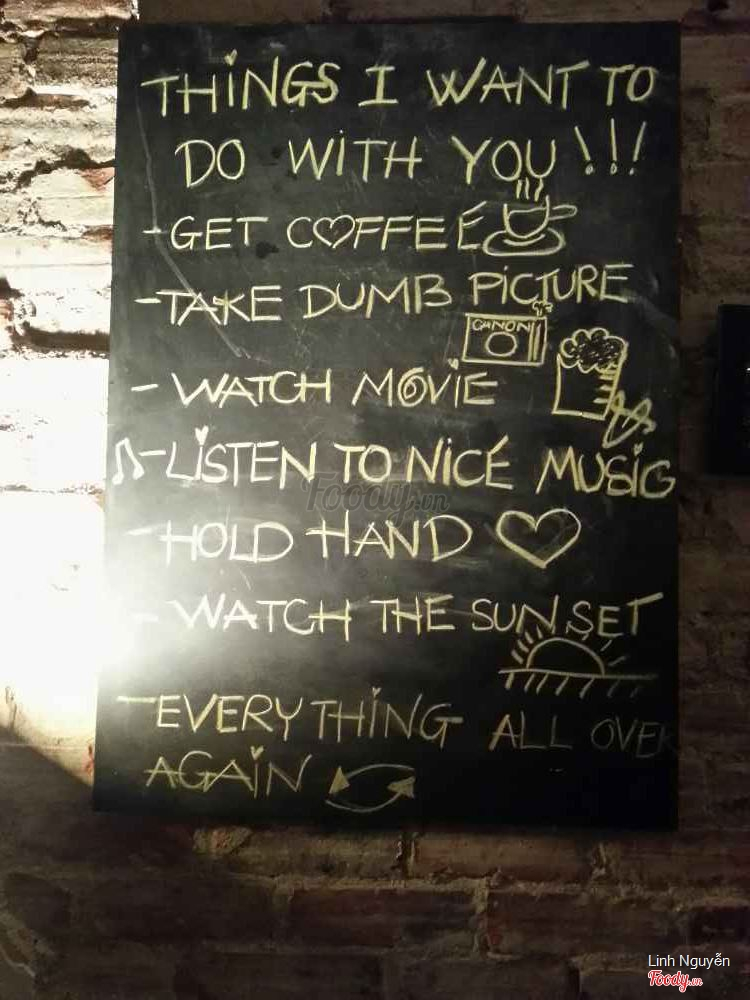 THINGS I WANT TO
DO WITH YOU!!!
-GET COFFEÉ
-TAKE DUMB PICTURE
CANON
- WATCH MOVIE
-LISTEN TO NICÉ MUSIC
-HOLD HAND
- WATCH THE SUNSET
-EVERYTHING ALL OVER
AGAIN
Foody.vn
Linh Nguyễn
Foody.vn